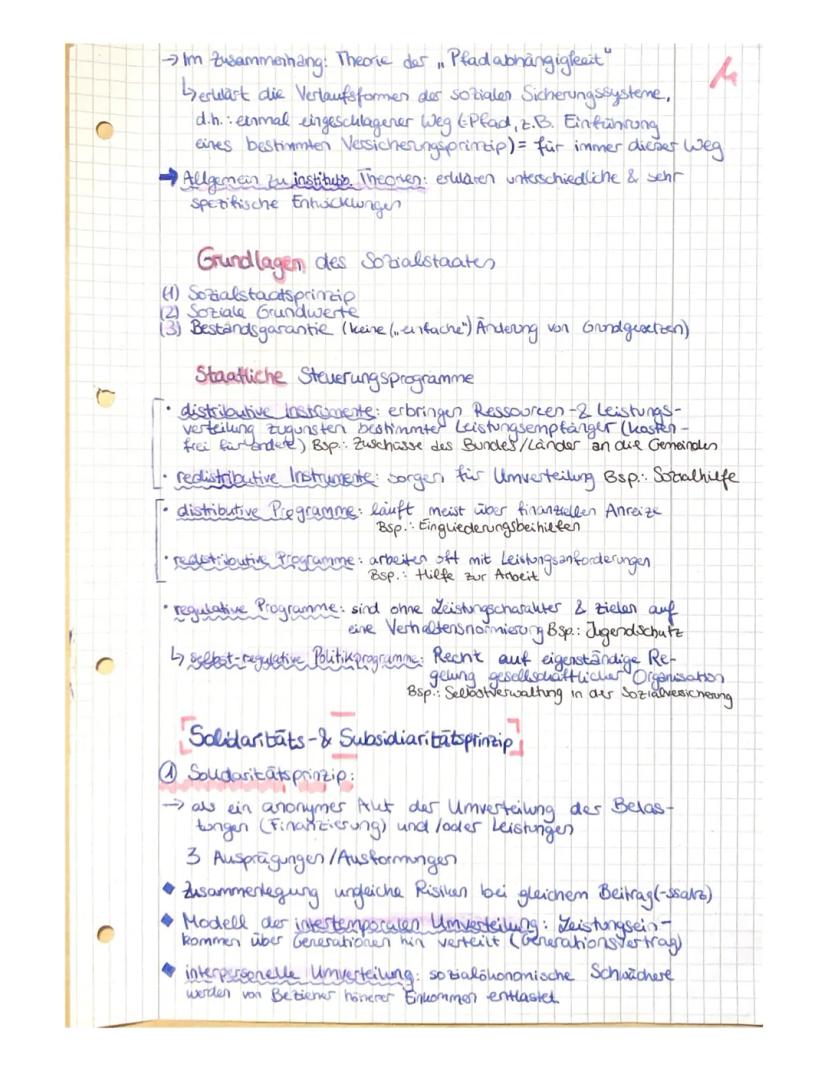 → Im Zusammenhang: Theorie der „Pfadabhängigkeit"
↳ erklärt die Verlaufsformen der sozialen Sicherungssysteme,
d.h.: einmal eingeschlagener Weg (=Pfad, z.B. Einführung
eines bestimmten Versicherungsprinzip) = für immer dieser Weg
➔ Allgemein zu institut. Theorien: erklären unterschiedliche & sehr
spezifische Entwicklungen
Grundlagen des Sozialstaates
(1) Sozialstaatsprinzip
(2) Soziale Grundwerte
(3) Bestandsgarantie (keine („einfache") Änderung von Grundgesetzen)
Staatliche Steuerungsprogramme
• distributive Instrumente: erbringen Ressourcen- & Leistungs-
verteilung zugunsten bestimmter Leistungsempfänger (kosten-
frei für andere) Bsp.: Zuschüsse des Bundes/Länder an die Gemeinden
• redistributive Instrumente: sorgen für Umverteilung Bsp.: Sozialhilfe
• distributive Programme: läuft meist über finanziellen Anreize
Bsp.: Eingliederungsbeihilfen
• redistributive Programme: arbeiten oft mit Leistungsanforderungen
Bsp.: Hilfe zur Arbeit
• regulative Programme: sind ohne Leistungscharakter & zielen auf
eine Verhaltensnormierung Bsp.: Jugendschutz
↳ selbst-regulative Politikprogramme: Recht auf eigenständige Re-
gelung gesellschaftlicher Organisation
Bsp.: Selbstverwaltung in der Sozialversicherung
Solidaritäts- & Subsidiaritätsprinzip
① Solidaritätsprinzip:
→ als ein anonymer Akt der Umverteilung des Belas-
tungen (Finanzierung) und/oder Leistungen
3 Ausprägungen/Ausformungen
◆ Zusammenlegung ungleiche Risiken bei gleichem Beitrag(-ssatz)
◆ Modell der intertemporalen Umverteilung: Leistungsein-
kommen über Generationen hin verteilt (Generationsvertrag)
◆ interpersonelle Umverteilung: sozialökonomische Schwächere
werden von Bezieher höherer Einkommen entlastet.